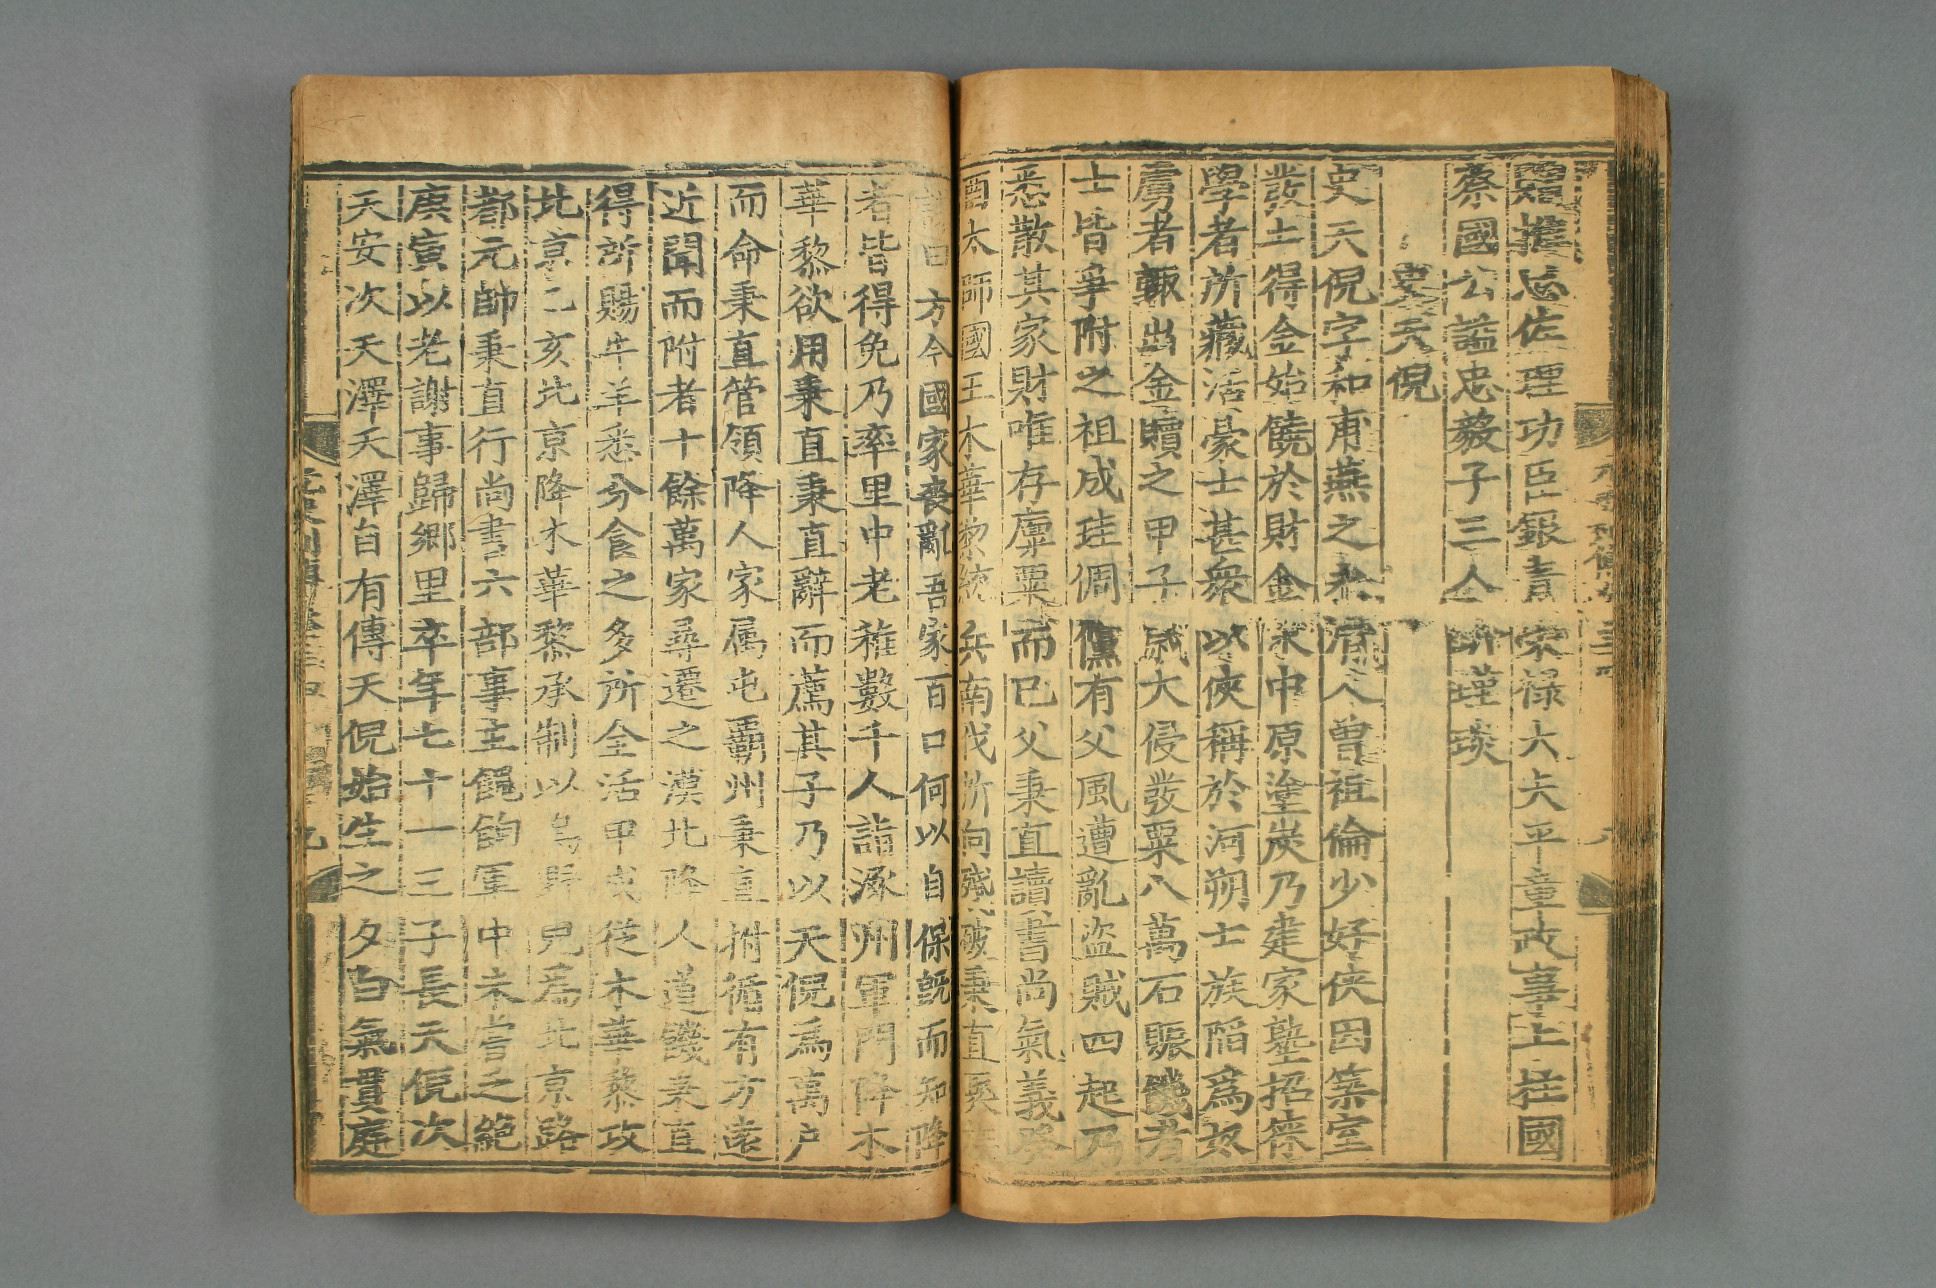 懿擴忠佐理功臣銀青榮祿大夫平章政事上柱國
蔡國公謚忠毅子三人嗣瑾琰
史天倪
史天倪字和甫燕之永清人曾祖倫少好俠因築室
發土得金始饒於財金末中原塗炭乃建家塾招徠
學者所藏活豪士甚衆以俠稱於河朔士族陷爲奴
虜者輒出金贖之甲子歲大侵發粟八萬石賑饑者
士皆爭附之祖成珪倜儻有父風遭亂盗賊四起乃
悉散其家財唯存廩粟而已父秉直讀書尚氣義癸
酉太師國王木華黎統兵南伐所向殘破秉直聚族
謀曰方今國家喪亂吾家百口何以自保旣而知降
者皆得免乃率里中老稚數千人詣涿州軍門降木
華黎欲用秉直秉直辭而薦其子乃以天倪爲萬户
而命秉直管領降人家属屯霸州秉直拊循有方遠
近聞而附者十餘萬家尋遷之漠北降人道饑秉直
得所賜牛羊悉分食之多所全活甲戌從木華黎攻
北京乙亥北京降木華黎承制以烏野兒爲北京路
都元帥秉直行尚書六部事主餽餉軍中未嘗乏絶
庚寅以老謝事歸鄉里卒年七十一三子長天倪次
天安次天澤天澤自有傳天倪始生之夕白氣貫庭
元史列傳卷三十四
九